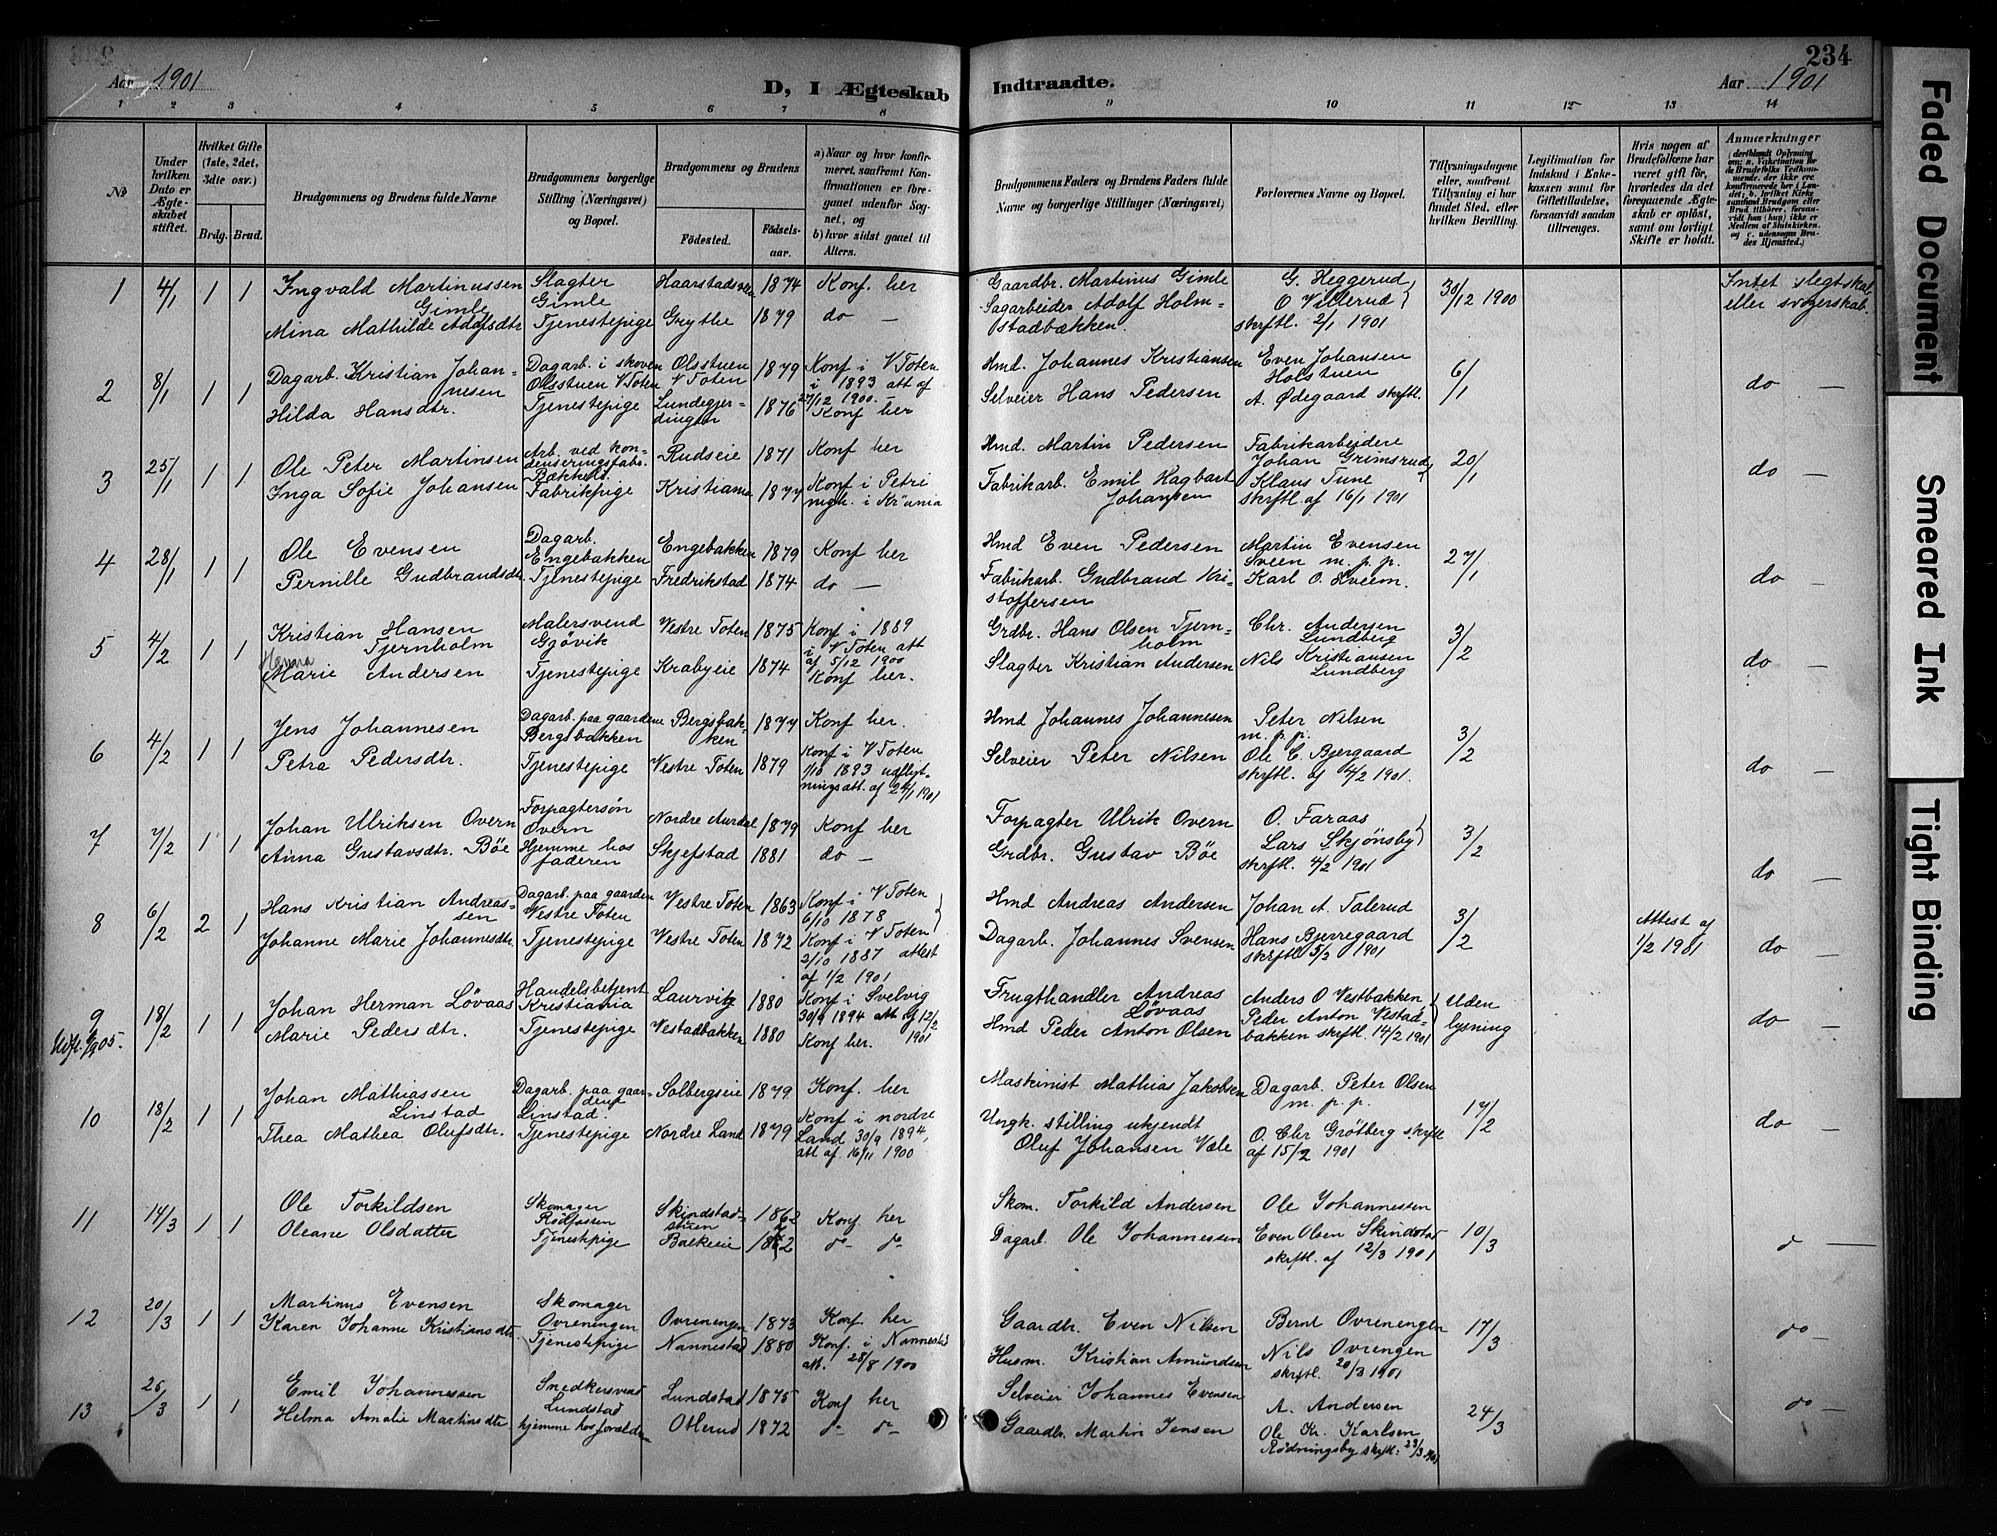 234
Aar 1901
D, I Ægteskab Indtraadte.
Aar 1901
1 2 3 4 5 6 7 8 9 10 11 12 13 14
No
Under hvilken Dato er Ægteskabet stiftet.
Hvilket Gifte (1ste, 2det, 3die osv.)
Brdg. Brud.
Brudgommens og Brudens fulde Navne
Brudgommens borgerlige Stilling (Næringsvei) og Bopæl.
Brudgommens og Brudens
Födested.
Födselsaar.
a) Naar og hvor konfirmeret, saafremt Konfirmationen er foregaaet udenfor Sognet, og
b) hvor sidst gaaet til Alters.
Brudgommens Faders og Brudens Faders fulde Navne og borgerlige Stillinger (Næringsvei)
Forlovernes Navne og Bopæl.
Tillysningsdagene eller, saafremt Tillysning ei har fundet Sted, efter hvilken Bevilling.
Legitimation for Indskud i Enkekassen samt for Giftetilladelse, forsaavidt saadan tiltrænges.
Hvis nogen af Brudefolkene har været gift för, hvorledes da det foregaaende Ægteskab er oplöst, samt om lovligt Skifte er holdt.
Anmærkninger
1 4/1 1 1 Ingvald Martinussen Gimle Slagter Gimle Haarstadsveen 1874 Konf. her Gaardbr. Martinus Gimle G. Heggerud 30/12 1900 Intet slegtskab
Mina Mathilde Adolfsdtr Tjenestepige Grythe 1879 do — Sagarbeider Adolf Holmstadbækken. O Villerud skrftl. 2/1 1901 eller svogerskab.
2 8/1 1 1 Dagarb. Kristian Johannesen Dagarb. i skoven Olsstuen V Toten Olsstuen V Toten 1879 Konf i V Toten i 1893 att af 27/12 1900. — Hmd. Johannes Kristiansen Even Johansen Holstuen 6/1 do —
Hilda Hansdtr. Tjenestepige 1876 Konf her Selveier Hans Pedersen A. Ødegaard skrftl.
3 25/1 1 1 Ole Peter Martinsen Arb. ved kondenseringsfabr. Rudseie 1871 Konf her Hmd. Martin Pedersen Fabrikarbeidere Johan Grimsrud 20/1 do —
Inga Sofie Johansen Fabrikpige Kristiania 1877 Konf i Petri mgh. i Kr'ania Fabrikarb. Emil Hagbart Johansen Klaus Tune skrftl. af 16/1 1901
4 28/1 1 1 Ole Evensen Dagarb. Engebakken Engebakken 1879 Konf her Hmd Even Pedersen Martin Evensen Sveen m. p. p. 27/1 do —
Pernille Gudbrandsdtr Tjenestepige Fredrikstad 1874 do — Fabrikarb. Gudbrand Kristoffersen Karl O. Sveem.
5 4/2 1 1 Kristian Hansen Tjernholm Malersvend Gjøvik Vestre Toten 1875 Konf i 1889 i V Toten att af 5/12 1900 Grdbr. Hans Olsen Tjernholm Chr. Andersen Lundberg 3/2 do —
Hanna
Marie Andersen Tjenestepige Krabyeie 1874 Konf her. Slagter Kristian Andersen Nils Kristiansen Lundberg
6 4/2 1 1 Jens Johannesen Dagarb. paa gaardene Bergsbakken Bergsbakken 1877 Konf her. Hmd Johannes Johannesen Peter Nilsen m. p. p. 3/2 do —
Petra Pedersdtr. Tjenestepige Vestre Toten 1879 Konf i V Toten 1/10 1893 udflytningsatt. af 24/1 1901 Selveier Peter Nilsen Ole C. Bjergaard skrftl. af 4/2 1901.
7 7/2 1 1 Johan Ulriksen Overn Forpagtersøn Overn Nordre Aurdal 1879 Konf her Forpagter Ulrik Overn O. Faraas 3/2 do —
Anna Gustavsdtr. Böe Hjemme hos faderen Skjefstad 1881 do — Grdbr. Gustav Böe Lars Skjönsby skrftl. 4/2 1901
8 6/2 2 1 Hans Kristian Andreassen Dagarb. paa gaarden Vestre Toten Vestre Toten 1863 Konf i V Toten 6/10 1878 Hmd Andreas Andersen Johan A. Talerud 3/2 Attest af 1/2 1901 do —
Johanne Marie Johannesdtr. Tjenestepige Vestre Toten 1872 Konf i V Toten 2/10 1887 attest af 1/2 1901 Dagarb. Johannes Svensen Hans Bjerregaard skrftl 5/2 1901
9 18/2 1 1 Johan Herman Lövaas Handelsbetjent Kristiania Laurvig 1880 Konf i Svelvig 30/9 1894 att af 12/2 1901 Frugthandler Andreas Lövaas Anders O Vestbakken Uden lysning do —
Marie Pedersdtr. Tjenestepige Vestadbakken 1880 Konf her. Hmd Peder Anton Olsen Peder Anton Vestadbakken skrftl. 14/2 1901
10 18/2 1 1 Johan Mathiassen Linstad Dagarb. paa gaarden Linstad. Solbergseie 1879 Konf. her Maskinist Mathias Jakobsen Dagarb. Peter Olsen m. p. p. 17/2 do —
Thea Mathea Olufsdtr. Tjenestepige Nordre Land 1879 Konf i nordre Land 30/9 1894, att af 16/11 1900 Ungk. stilling ukjendt Oluf Johansen Væle O. Chr Grötberg skrftl af 15/2 1901
11 14/3 1 1 Ole Torkildsen Skomager Rødfossen Skindstadstuen 1862 Konf her Skom. Torkild Andersen Ole Johannessen 10/3 do —
Oleane Olsdatter Tjenestepige Balkeie do do Dagarb. Ole Johannessen Even Olsen Skindstad skrftl. af 12/3 1901
12 20/3 1 1 Martinus Evensen Skomager Ovreningen Ovreningen 1873 Konf. her Gaardbr. Even Nilsen Bernt Ovreningen 17/3 do —
Karen Johanne Kristiansdtr. Tjenestepige Nannestad 1880 Konf. i Nannestad att. 28/8 1900 Husm. Kristian Amundsen Nils Ovrengen skrftl. 20/3 1901
13 26/3 1 1 Emil Johannessen Snedkersvend Lundstad Lundstad 1875 Konf her Selveier Johannes Evensen A. Andersen 24/3 do —
Helma Amalie Martinsdtr. hjemme hos forældrene Otterud 1872 do do Gaardbr. Martin Jensen Ole Kr. Karlsen Rødningsby skrftl: 23/3 1901
Faded Document
Smeared Ink
Tight Binding